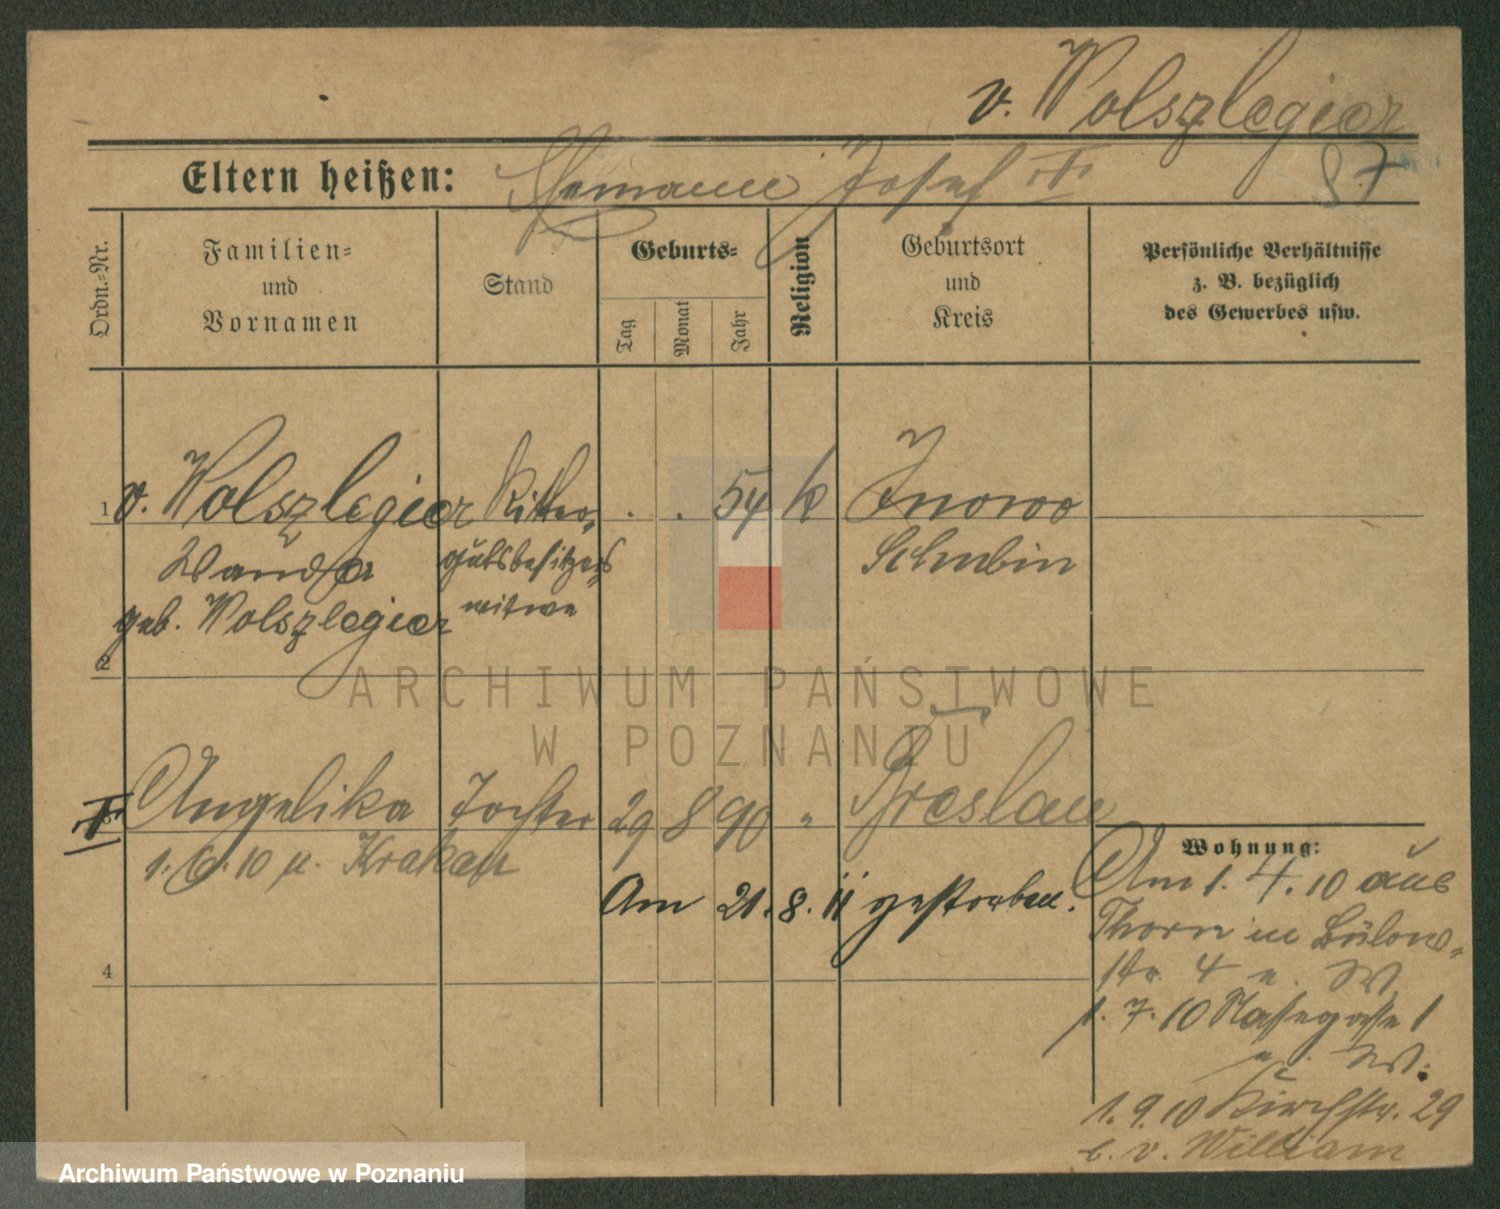 v. Wolszlegier
Eltern heißen: Josef
87
Ordn.-Nr.
Familien-
und
Vornamen
Stand
Geburts-
Tag
Monat
Jahr
Religion
Geburtsort
und
Kreis
Persönliche Verhältnisse
z. B. bezüglich
des Gewerbes usw.
1 v. Wolszlegier Ritter- . . 54 k Inowo
Wanda gutsbesitzers- Schubin
geb. Wolszlegier witwe
2
ARCHIWUM PAŃSTWOWE
W POZNANIU
3 Angelika Tochter 29 8 90 " Breslau
1. 6. 10 n. Krakau
Am 21. 8. 11 gestorben.
4
Wohnung:
Am 1. 4. 10 aus
Thorn in Bülow-
str. 4
1. 7. 10 1
1. 9. 10 Kirchstr. 29
b. v. William
Archiwum Państwowe w Poznaniu